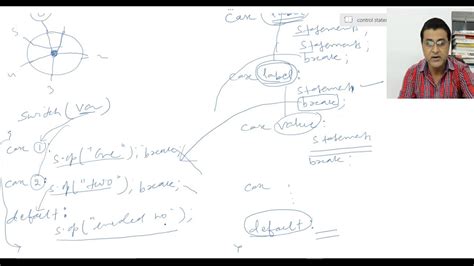 case label:
statements
statements;
break;
case label:
statements
break;
case value:
statements
break;
case
default:
control state
5
4
3
switch (var)
case 1:
s.op("one"); break;
case 2:
s.op("two"), break;
default:
s.op("invalid no");